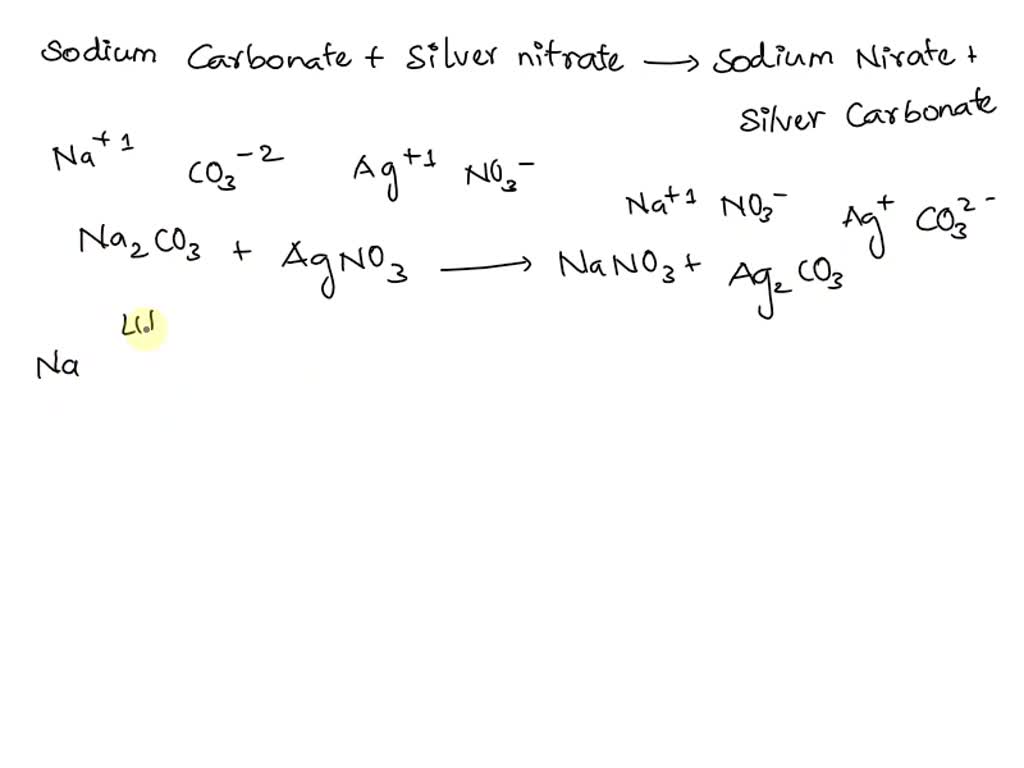 Sodium Carbonate + Silver nitrate → Sodium Nirate +
Silver Carbonate
Na⁺¹ CO₃⁻² Ag⁺¹ NO₃⁻
Na⁺¹ NO₃⁻ Ag⁺ CO₃²⁻
Na₂CO₃ + AgNO₃ → NaNO₃ + Ag₂CO₃
Na